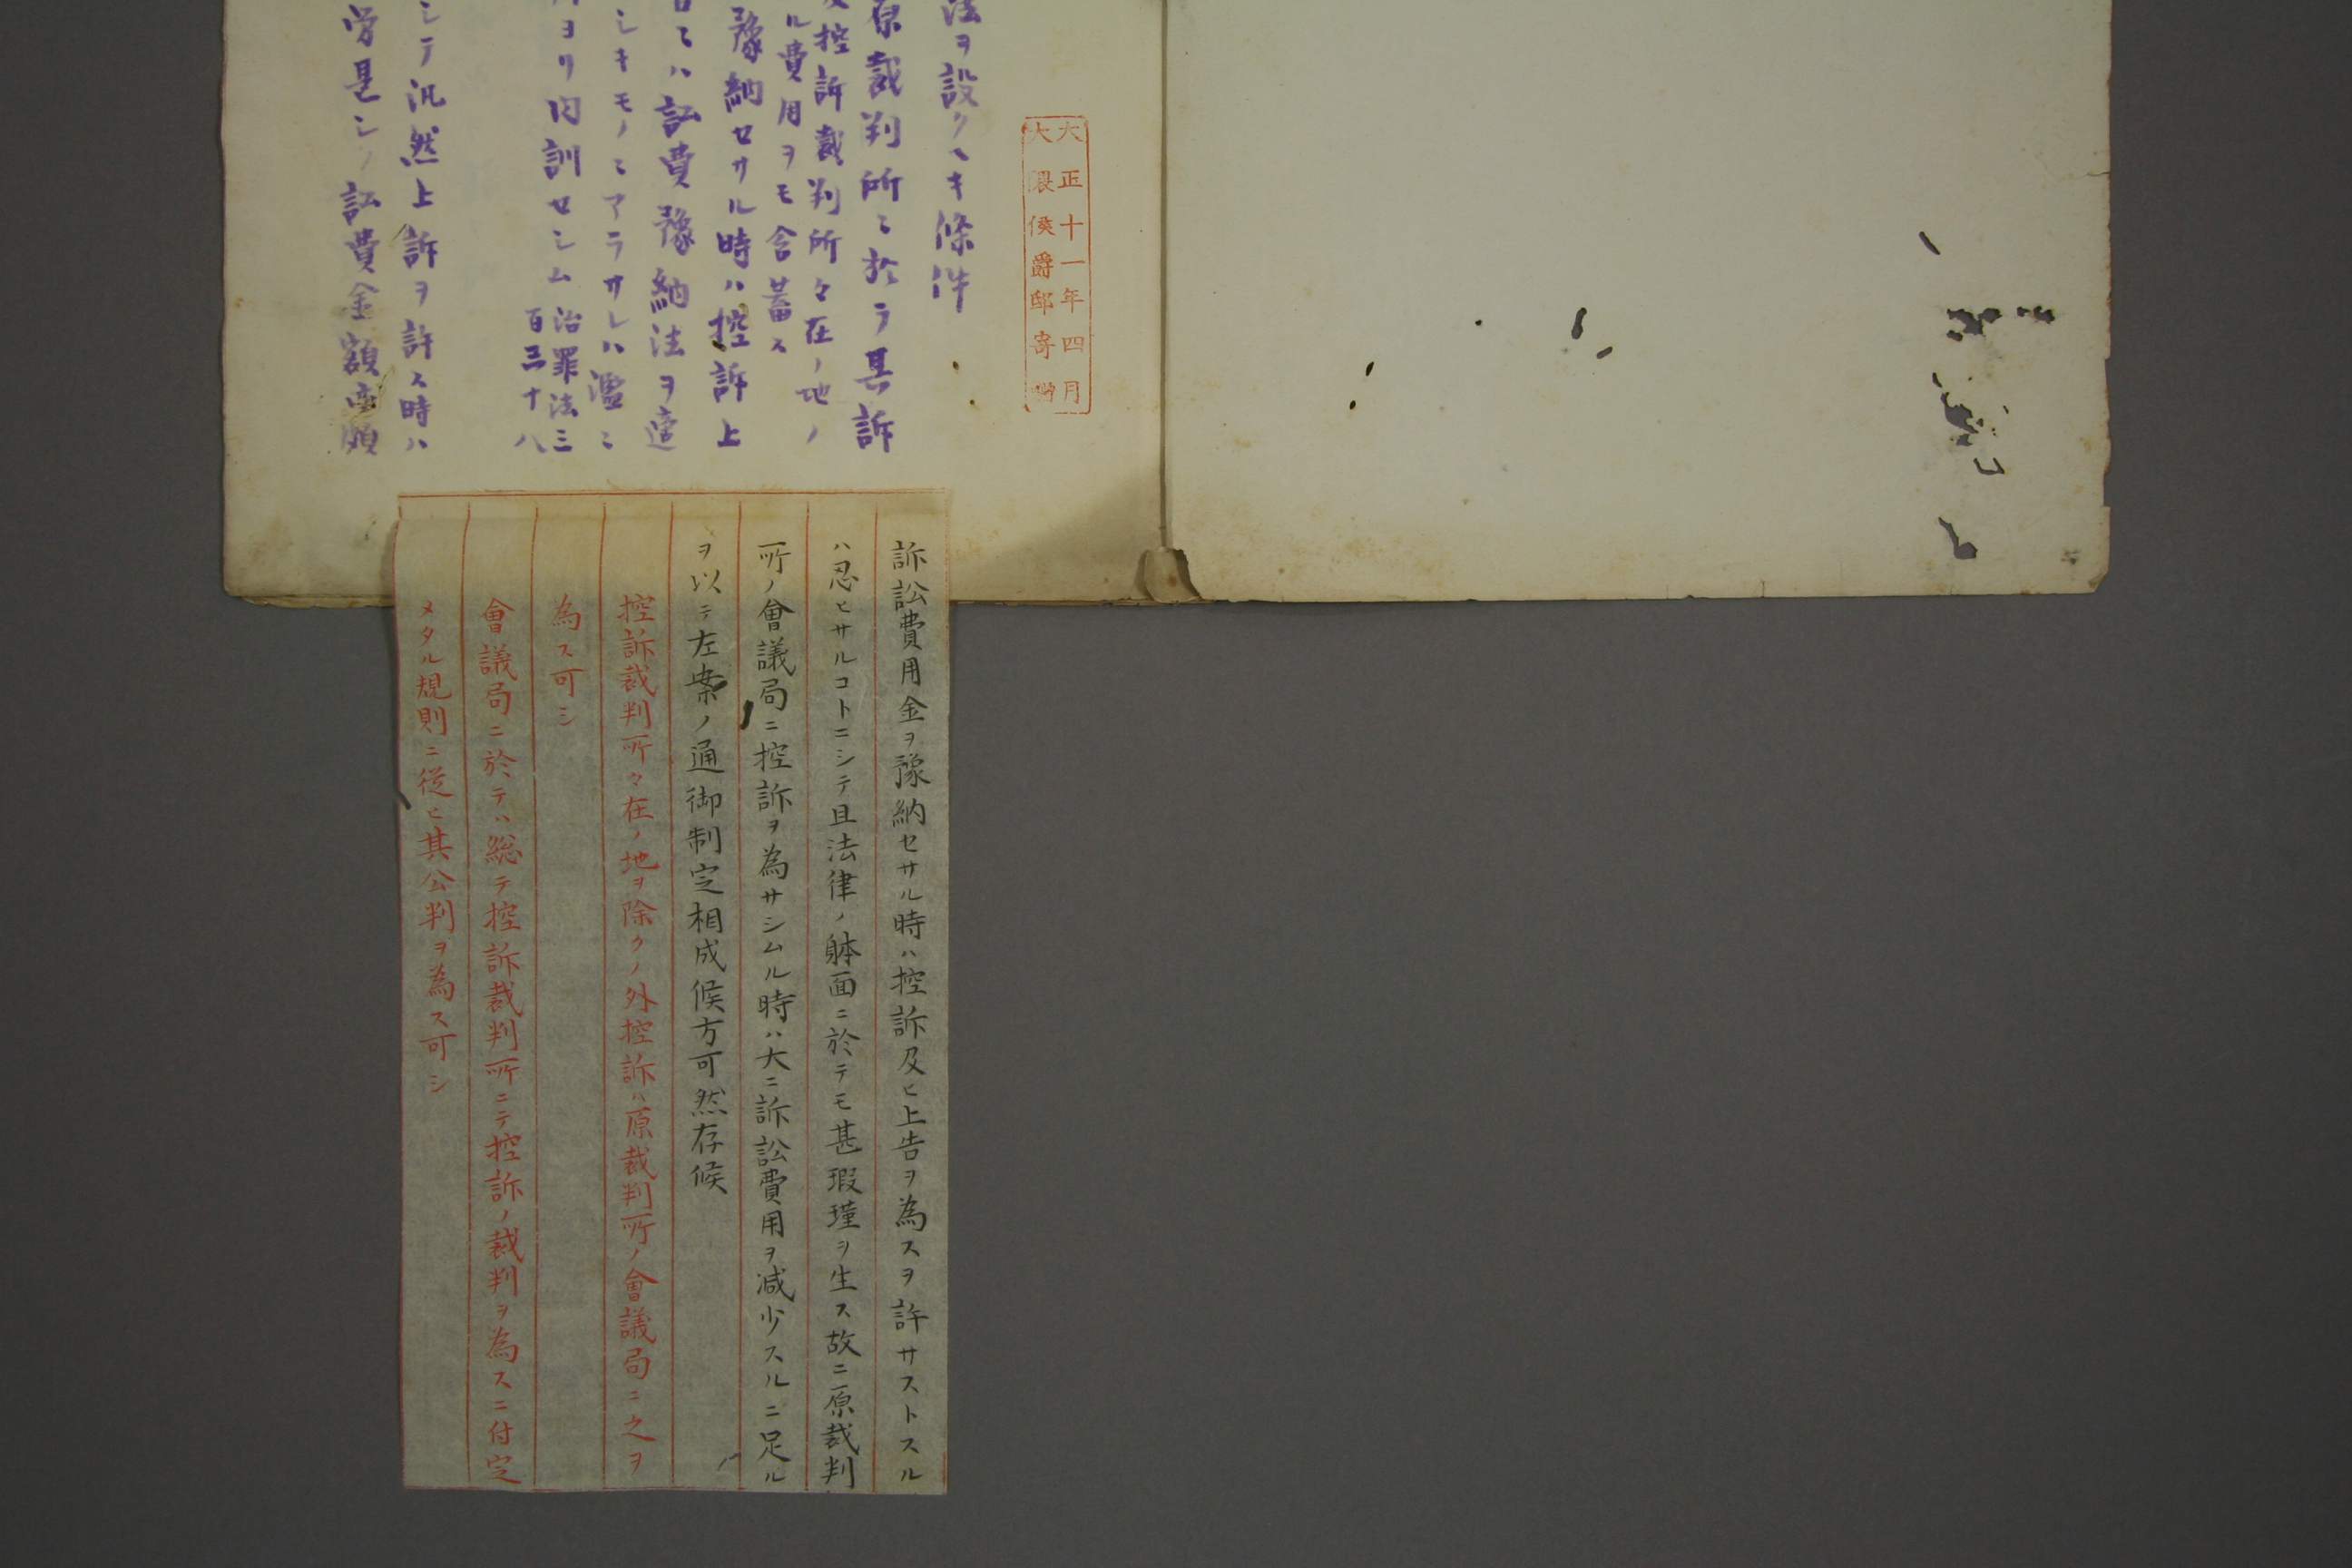 大正十一年四月
大隈侯爵邸寄贈
法ヲ設クヘキ條件
原裁判所ニ於テ其訴
控訴裁判所々在ノ地ノ
ル費用ヲモ含蓄ス
豫納セサル時ハ控訴上
ニハ訟費豫納法ヲ
シキモノニアラサレハ濫ニ
ヨリ内訓セシム
治罪法三
百三十八
シテ汎然上訴ヲ許ス時ハ
訟費金額
訴訟費用金ヲ豫納セサル時ハ控訴及ヒ上告ヲ為スヲ許サストスル
ハ忍ヒサルコトニシテ且法律ノ躰面ニ於テモ甚瑕瑾ヲ生ス故ニ原裁判
所ノ會議局ニ控訴ヲ為サシムル時ハ大ニ訴訟費用ヲ減少スルニ足ル
ヲ以テ左案ノ通御制定相成候方可然存候
控訴裁判所々在ノ地ヲ除クノ外控訴ハ原裁判所ノ會議局ニ之ヲ
為ス可シ
會議局ニ於テハ総テ控訴裁判所ニテ控訴ノ裁判ヲ為スニ付定
メタル規則ニ従ヒ其公判ヲ為ス可シ